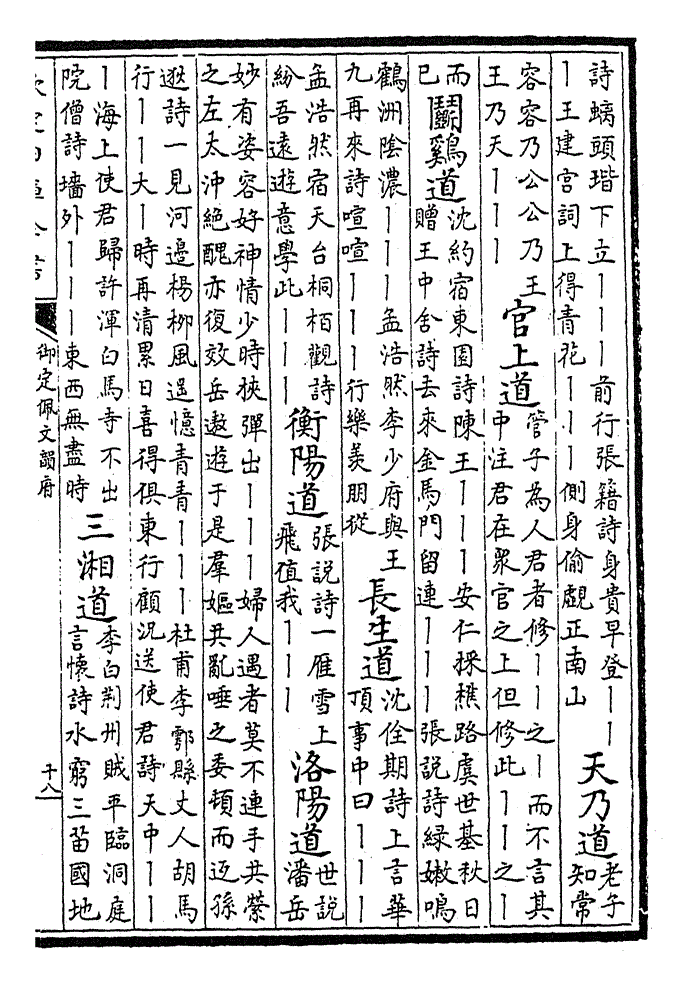 詩螭頭堦下立丨丨丨前行張籍詩身貴早登丨丨
丨王建宫詞上得青花丨丨丨側身偷覷正南山
天乃道
老子
知常
容容乃公公乃王
王乃天丨丨丨
官上道
管子為人君者修丨丨之丨而不言其
中注君在衆官之上但修此丨丨之丨
而
已
鬭鷄道
沈約宿東園詩陳王丨丨丨安仁採樵路虞世基秋日
贈王中舍詩去來金馬門留連丨丨丨張説詩緑嫩鳴
鶴洲陰濃丨丨丨孟浩然李少府與王
九再來詩喧喧丨丨丨行樂羨朋從
長生道
沈佺期詩上言華
頂事中曰丨丨丨
孟浩然宿天台桐栢觀詩
紛吾遠遊意學此丨丨丨
衡陽道
張説詩一雁雪上
飛值我丨丨丨
洛陽道
世説
潘岳
妙有姿容好神情少時挾彈出丨丨丨婦人遇者莫不連手共縈
之左太沖絶醜亦復效岳遨遊于是羣嫗共亂唾之委頓而返孫
逖詩一見河邊楊柳風遥憶青青丨丨丨杜甫李鄠縣丈人胡馬
行丨丨大丨時再清累日喜得俱東行顧況送使君詩天中丨丨
丨海上使君歸許渾白馬寺不出
院僧詩墻外丨丨丨東西無盡時
三湘道
李白荆州賊平臨洞庭
言懷詩水窮三苗國地
欽定四庫全書
御定佩文韻府
十八